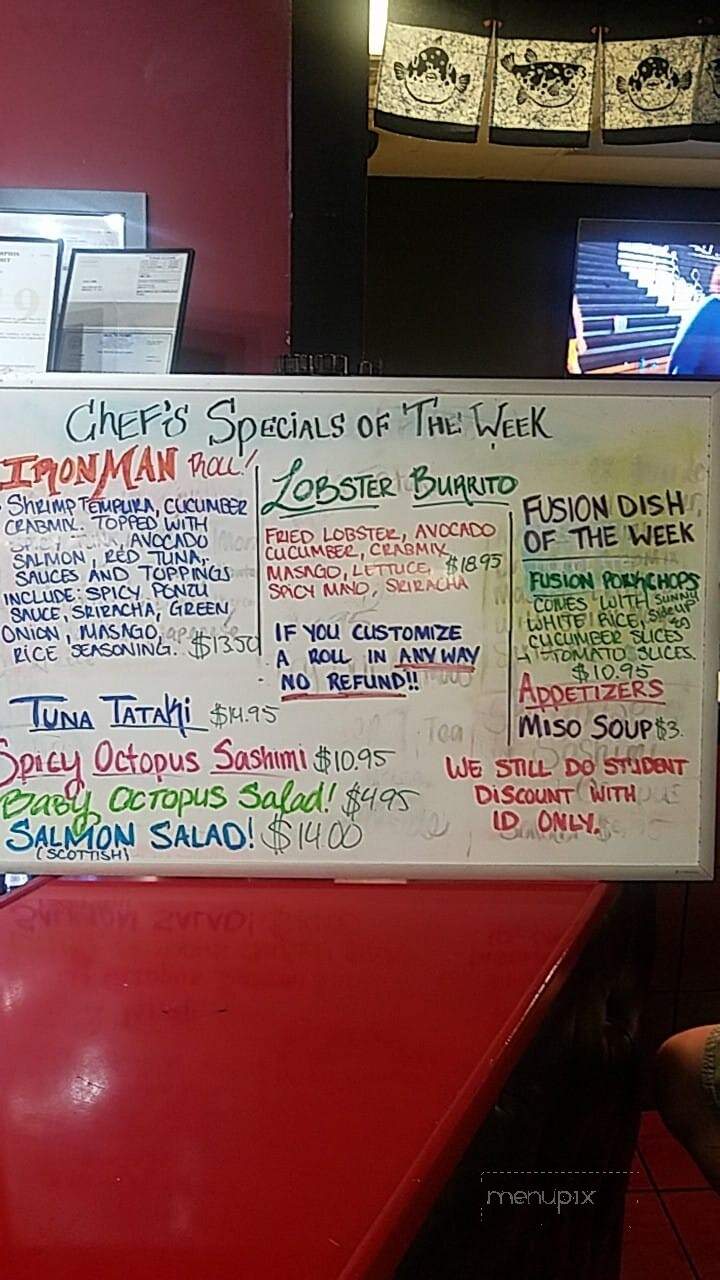 CHEF'S SPECIALS OF THE WEEK
IRONMAN ROLL!
SHRIMP TEMPURA, CUCUMBER
CRABMIX. TOPPED WITH
AVOCADO
SALMON, RED TUNA,
SAUCES AND TOPPINGS
INCLUDE: SPICY PONZU
SAUCE, SRIRACHA, GREEN
ONION, MASAGO,
RICE SEASONING. $13.50
LOBSTER BURRITO
FRIED LOBSTER, AVOCADO
CUCUMBER, CRABMIX
MASAGO, LETTUCE, $18.95
SPICY MAYO, SRIRACHA
IF YOU CUSTOMIZE
A ROLL IN ANY WAY
NO REFUND!!
FUSION DISH
OF THE WEEK
FUSION PORKCHOPS
COMES WITH SUNNY
WHITE RICE, SIDE UP
CUCUMBER SLICES
TOMATO SLICES.
$10.95
APPETIZERS
MISO SOUP $3.
TUNA TATAKI $14.95
Spicy Octopus Sashimi $10.95
BABY OCTOPUS Salad! $4.95
SALMON SALAD! $14.00
(SCOTTISH)
WE STILL DO STUDENT
DISCOUNT WITH
ID ONLY.
menupix